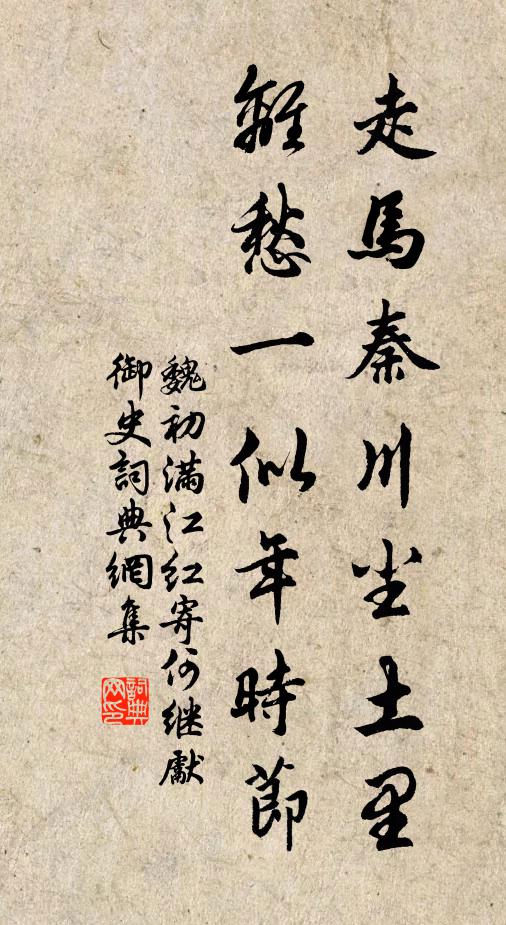 走馬秦川尘土里
離愁一似年時節
魏初滿江红寄何继獻
御史詞典網集
詞典
网印